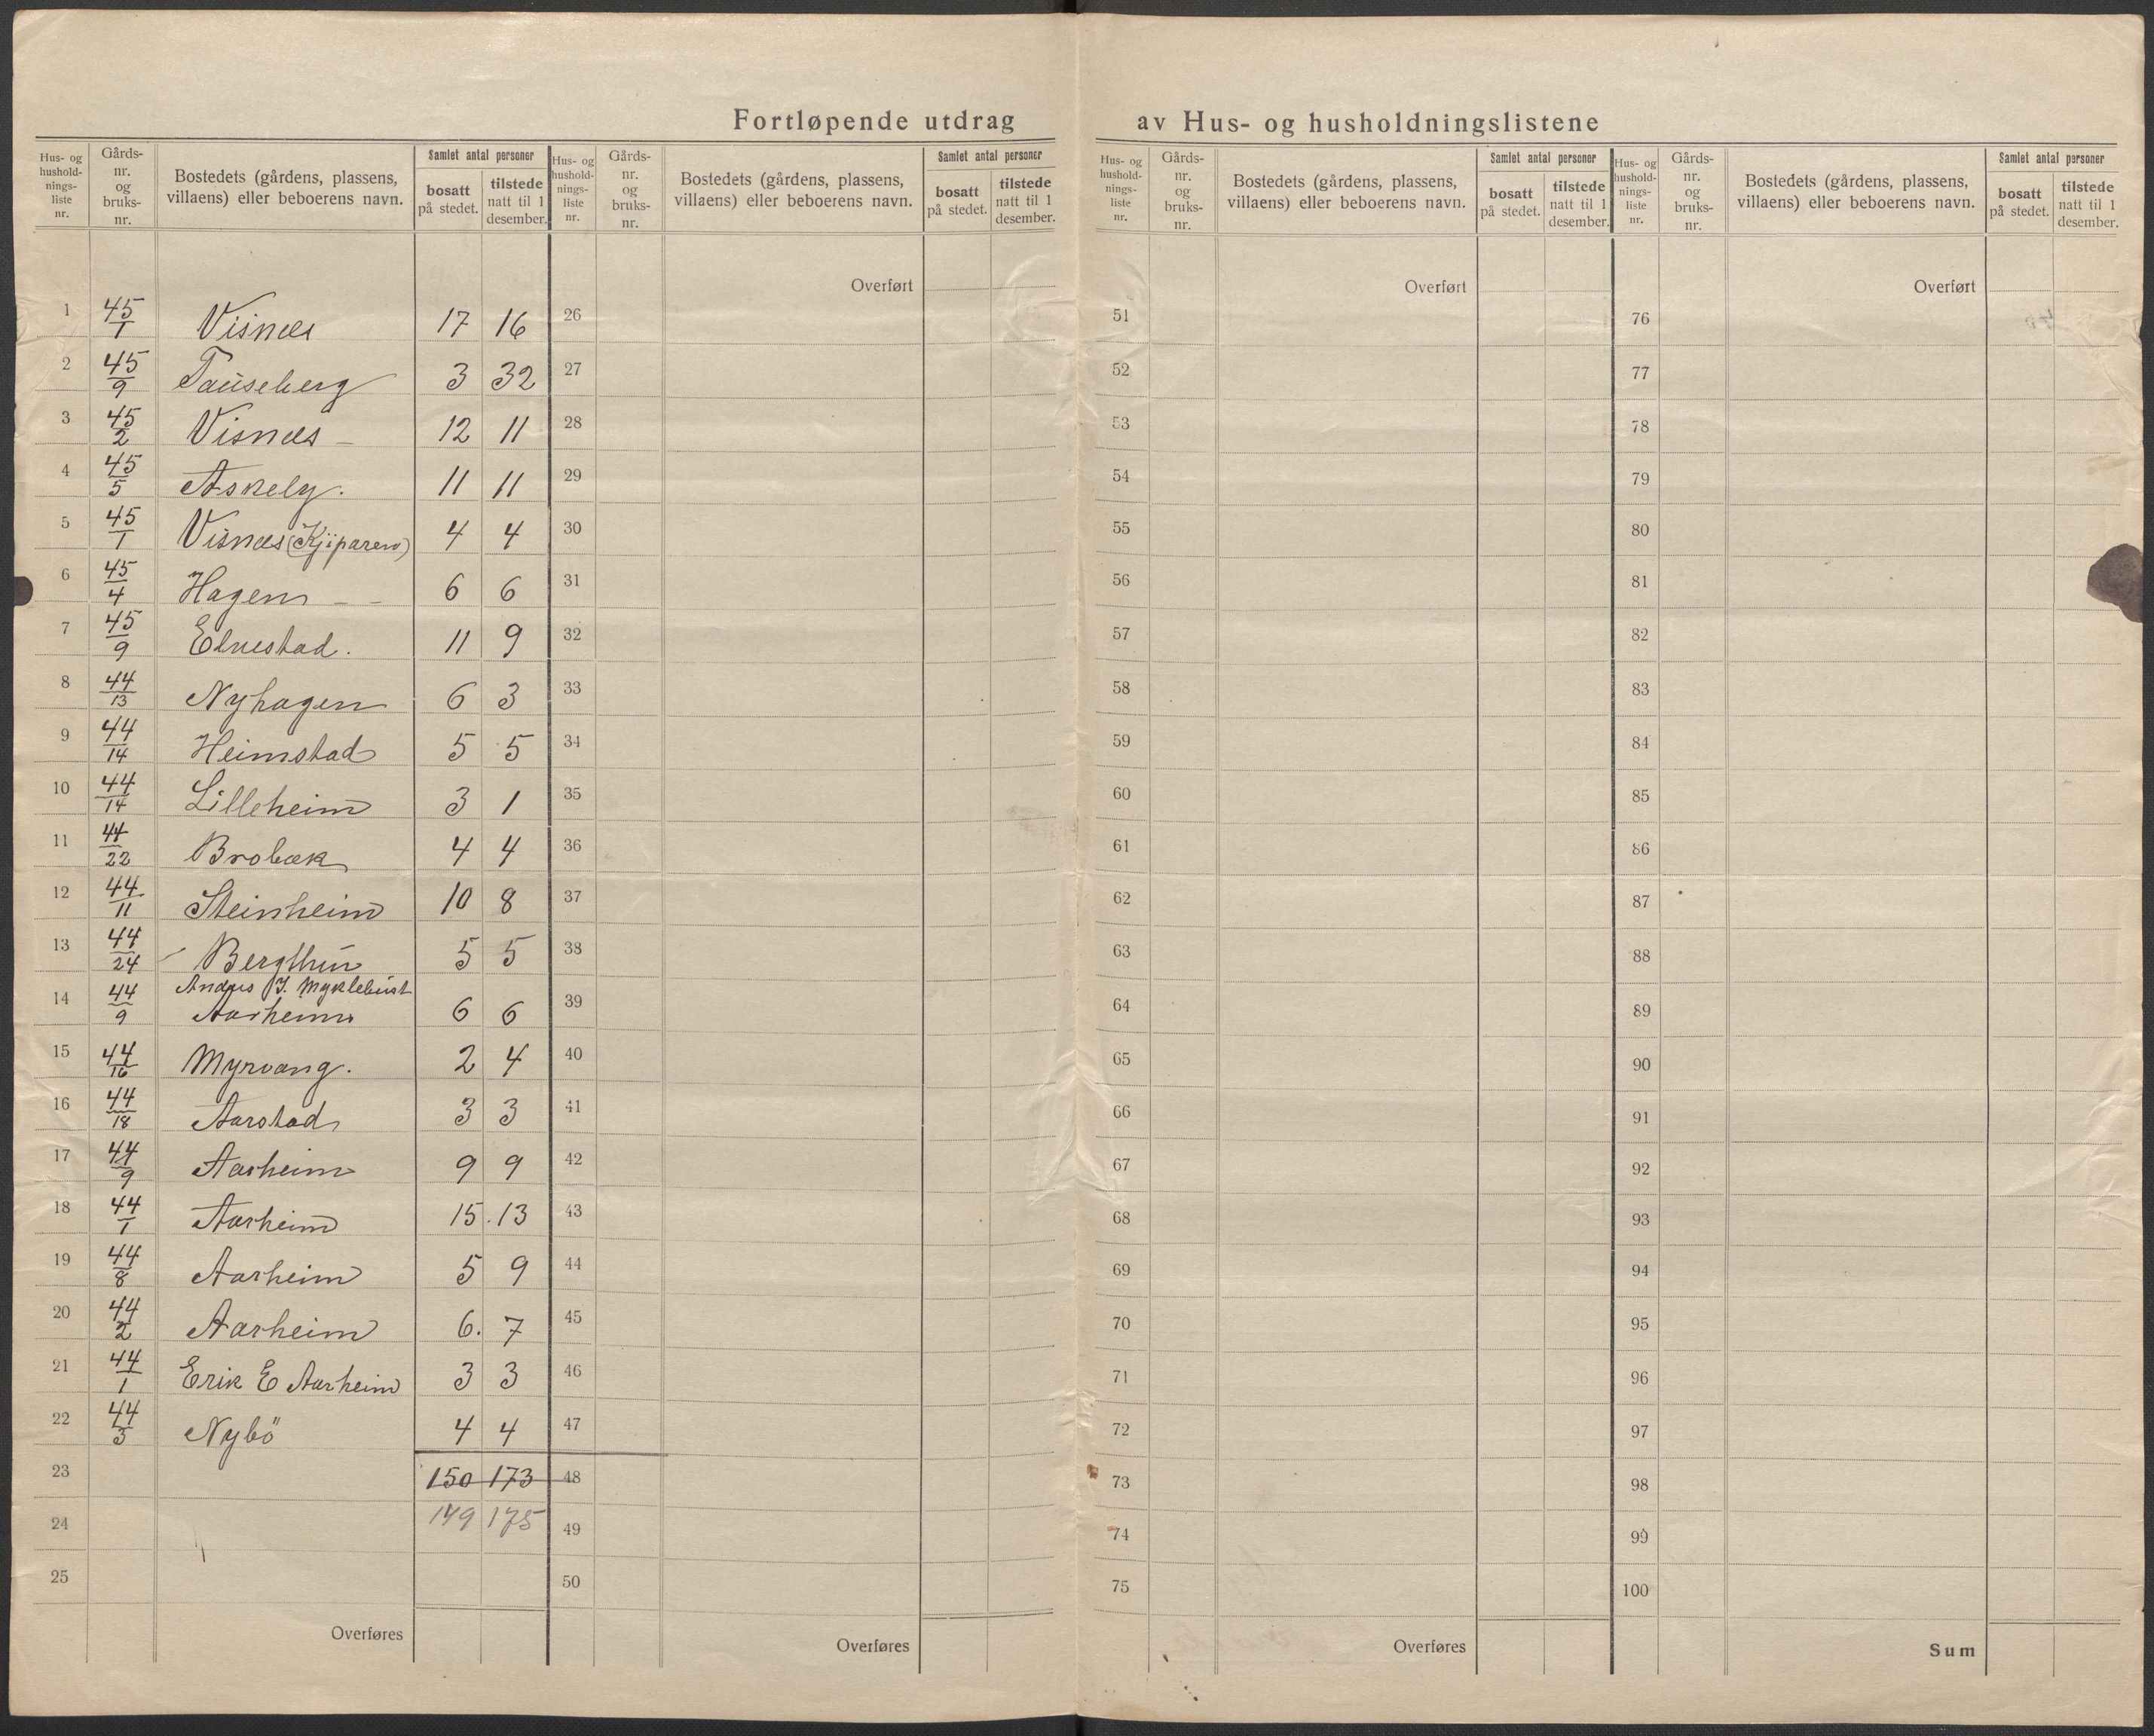 Fortløpende utdrag av Hus- og husholdningslistene
Hus- og hushold-nings-liste nr. Gårds-nr. og bruks-nr. Bostedets (gårdens, plassens, villaens) eller beboerens navn. Samlet antal personer bosatt på stedet. tilstede natt til 1 desember.
Hus- og hushold-nings-liste nr. Gårds-nr. og bruks-nr. Bostedets (gårdens, plassens, villaens) eller beboerens navn. Samlet antal personer bosatt på stedet. tilstede natt til 1 desember.
Hus- og hushold-nings-liste nr. Gårds-nr. og bruks-nr. Bostedets (gårdens, plassens, villaens) eller beboerens navn. Samlet antal personer bosatt på stedet. tilstede natt til 1 desember.
Hus- og hushold-nings-liste nr. Gårds-nr. og bruks-nr. Bostedets (gårdens, plassens, villaens) eller beboerens navn. Samlet antal personer bosatt på stedet. tilstede natt til 1 desember.
Overført Overført Overført
1 45/1 Visnes 17 16 26 51 76
2 45/9 Tauseberg 3 32 27 52 77
3 45/2 Visnes - 12 11 28 53 78
4 45/5 Askely. 11 11 29 54 79
5 45/1 Visnes (Kjiparen) 4 4 30 55 80
6 45/4 Hagen - - 6 6 31 56 81
7 45/9 Elvestad. 11 9 32 57 82
8 44/13 Nyhagen 6 3 33 58 83
9 44/14 Heimstad 5 5 34 59 84
10 44/14 Lilleheim 3 1 35 60 85
11 44/22 Brobæk 4 4 36 61 86
12 44/11 Steinheim 10 8 37 62 87
13 44/24 Bergthun 5 5 38 63 88
Andrs J. Myklebust
14 44/9 Aarheim 6 6 39 64 89
15 44/16 Myrvang. 2 4 40 65 90
16 44/18 Aarstad 3 3 41 66 91
17 44/9 Aarheim 9 9 42 67 92
18 44/1 Aarheim 15 13 43 68 93
19 44/8 Aarheim 5 9 44 69 94
20 44/2 Aarheim 6. 7 45 70 95
21 44/1 Erik E Aarheim 3 3 46 71 96
22 44/3 Nybö 4 4 47 72 97
23 150 173 48 73 98
24 149 175 49 74 99
25 50 75 100
Overføres Overføres Overføres Sum